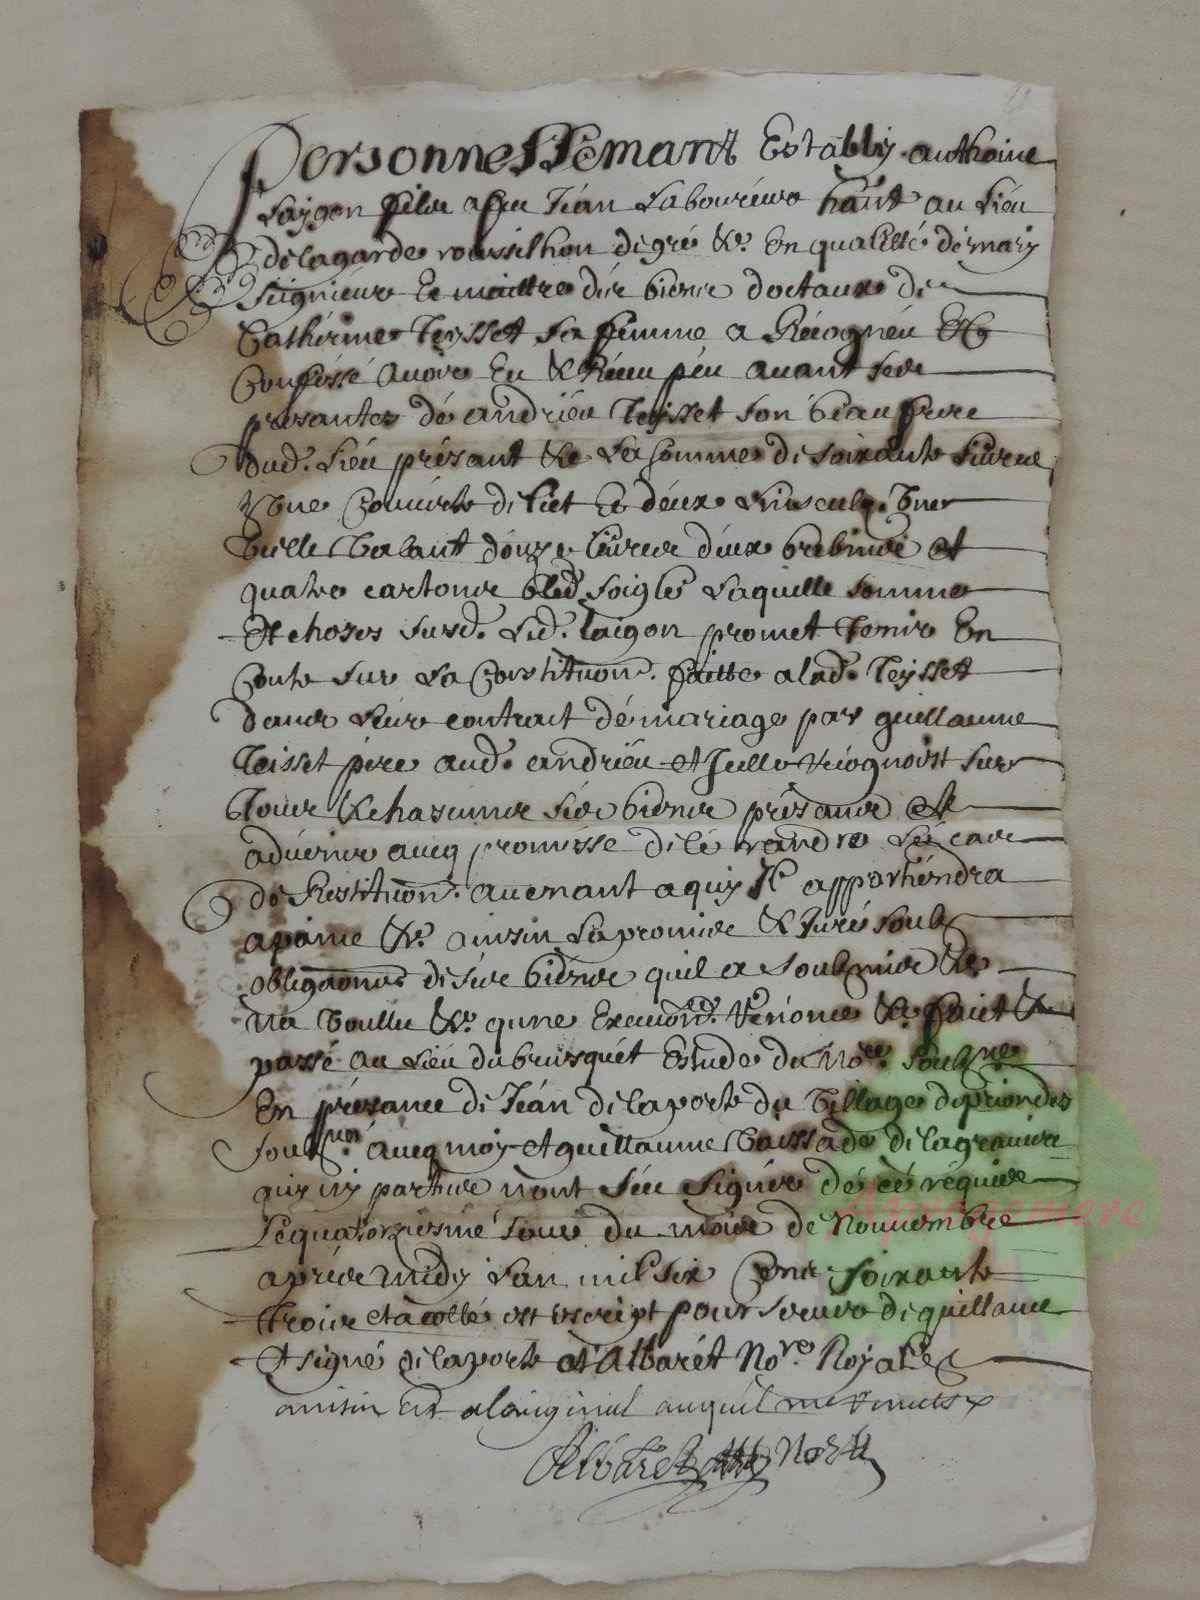 Personnellemant Establÿ anthoine
Laÿgon filz a feu Jean Laboureur hant au Lieu
de lagarde roussilhon de gré &c En qualitté de marÿ
Seignieur Et maittre des biens doctaux de
Catherine Teÿsset Sa femme a Recogneu Et
Confessé Avoir Eu & Receu peu avant ses
presantes de andrieu Teÿsset son beau frere
dud. Lieu présant &c La Somme de soixante Livres
Une Couverte de liet Et deux Linseulz Une
Vallant douze livres deux brebines et
quatre cartons bled soigle Laquelle somme
Et choses susd. Led. laigon promet Tenir En
Conte sur La Constitution faitte a lad. Teÿsset
dans Leur contract de mariage par guillaume
Teisset pere aud. andrieu et Jcelle recognoist sur
Tous & chascuns ses biens présans et
advenir avecq promesse de le randre Le cas
de Restitution avenant a quÿ Jl appartiendra
a paine &c ainsin La promis & Juré soubz
obligaons de ses biens quil a Soubzmis &c
Na Voullu &c qune Execuon &c Renonce &c faict &
passé au Lieu du bruisquet Estude du No.re soubz.né
En présance de Jean delaporte du Village de priondes
Soubz.né avecq moÿ et guillaume Vaissade de lagraviere
quÿ nÿ parties nont Sceu Signer de ce réquis
Lequatorziesme Jour du mois de Novembre
apres midÿ Lan mil six Cens soixante
Trois et a costé est escript pour servir de quillance
Et signé delaporte et Albaret No.re Royal
ainsin Est a loriginal auquel me remets
Albaret No.re
Aprogemere